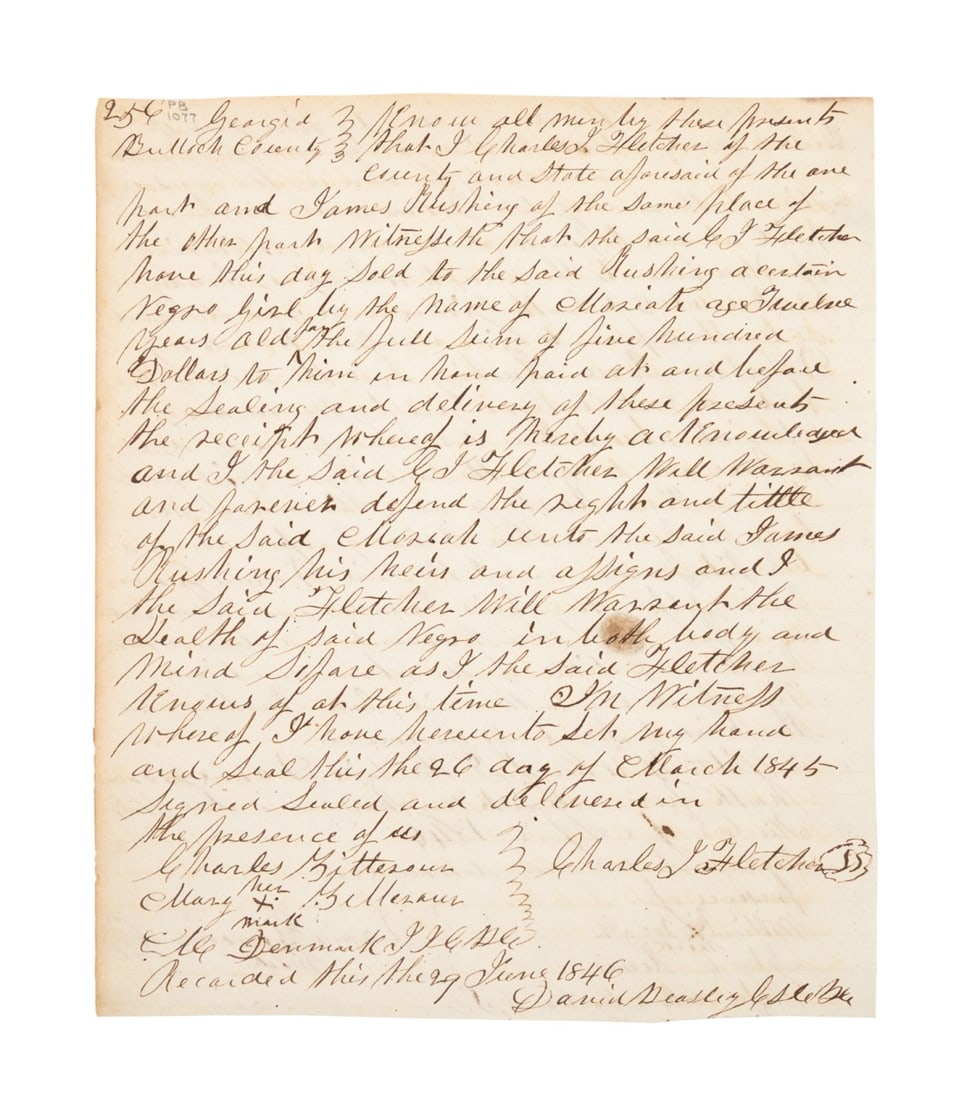 256 PB 1077 Georgia } Know all men by these presents
Bulloch County } that I Charles J. Fletcher of the
County and State aforesaid of the one
part and James Rushing of the same place of
the other part Witnesseth that the said C J Fletcher
have this day Sold to the said Rushing a certain
Negro Girl by the name of Moriah age Twelve
years old for the full sum of five hundred
Dollars to him in hand paid at and before
the sealing and delivery of these presents
the receipt whereof is hereby acknowledged
and I the said C J Fletcher Will Warrant
and forever defend the right and tittle
of the said Moriah unto the said James
Rushing his heirs and assigns and I
the said Fletcher Will Warrant the
Health of said Negro in both body and
Mind Sofare as I the said Fletcher
Knows of at this time In Witness
whereof I have hereunto set my hand
and seal this the 26 day of March 1845
Signed Sealed and delivered in
the presence of us
Charles }  Charles J Fletcher SS
Mary her
X
mark
Denmark J I C BC
Recorded this the 29 June 1846
David Beasley